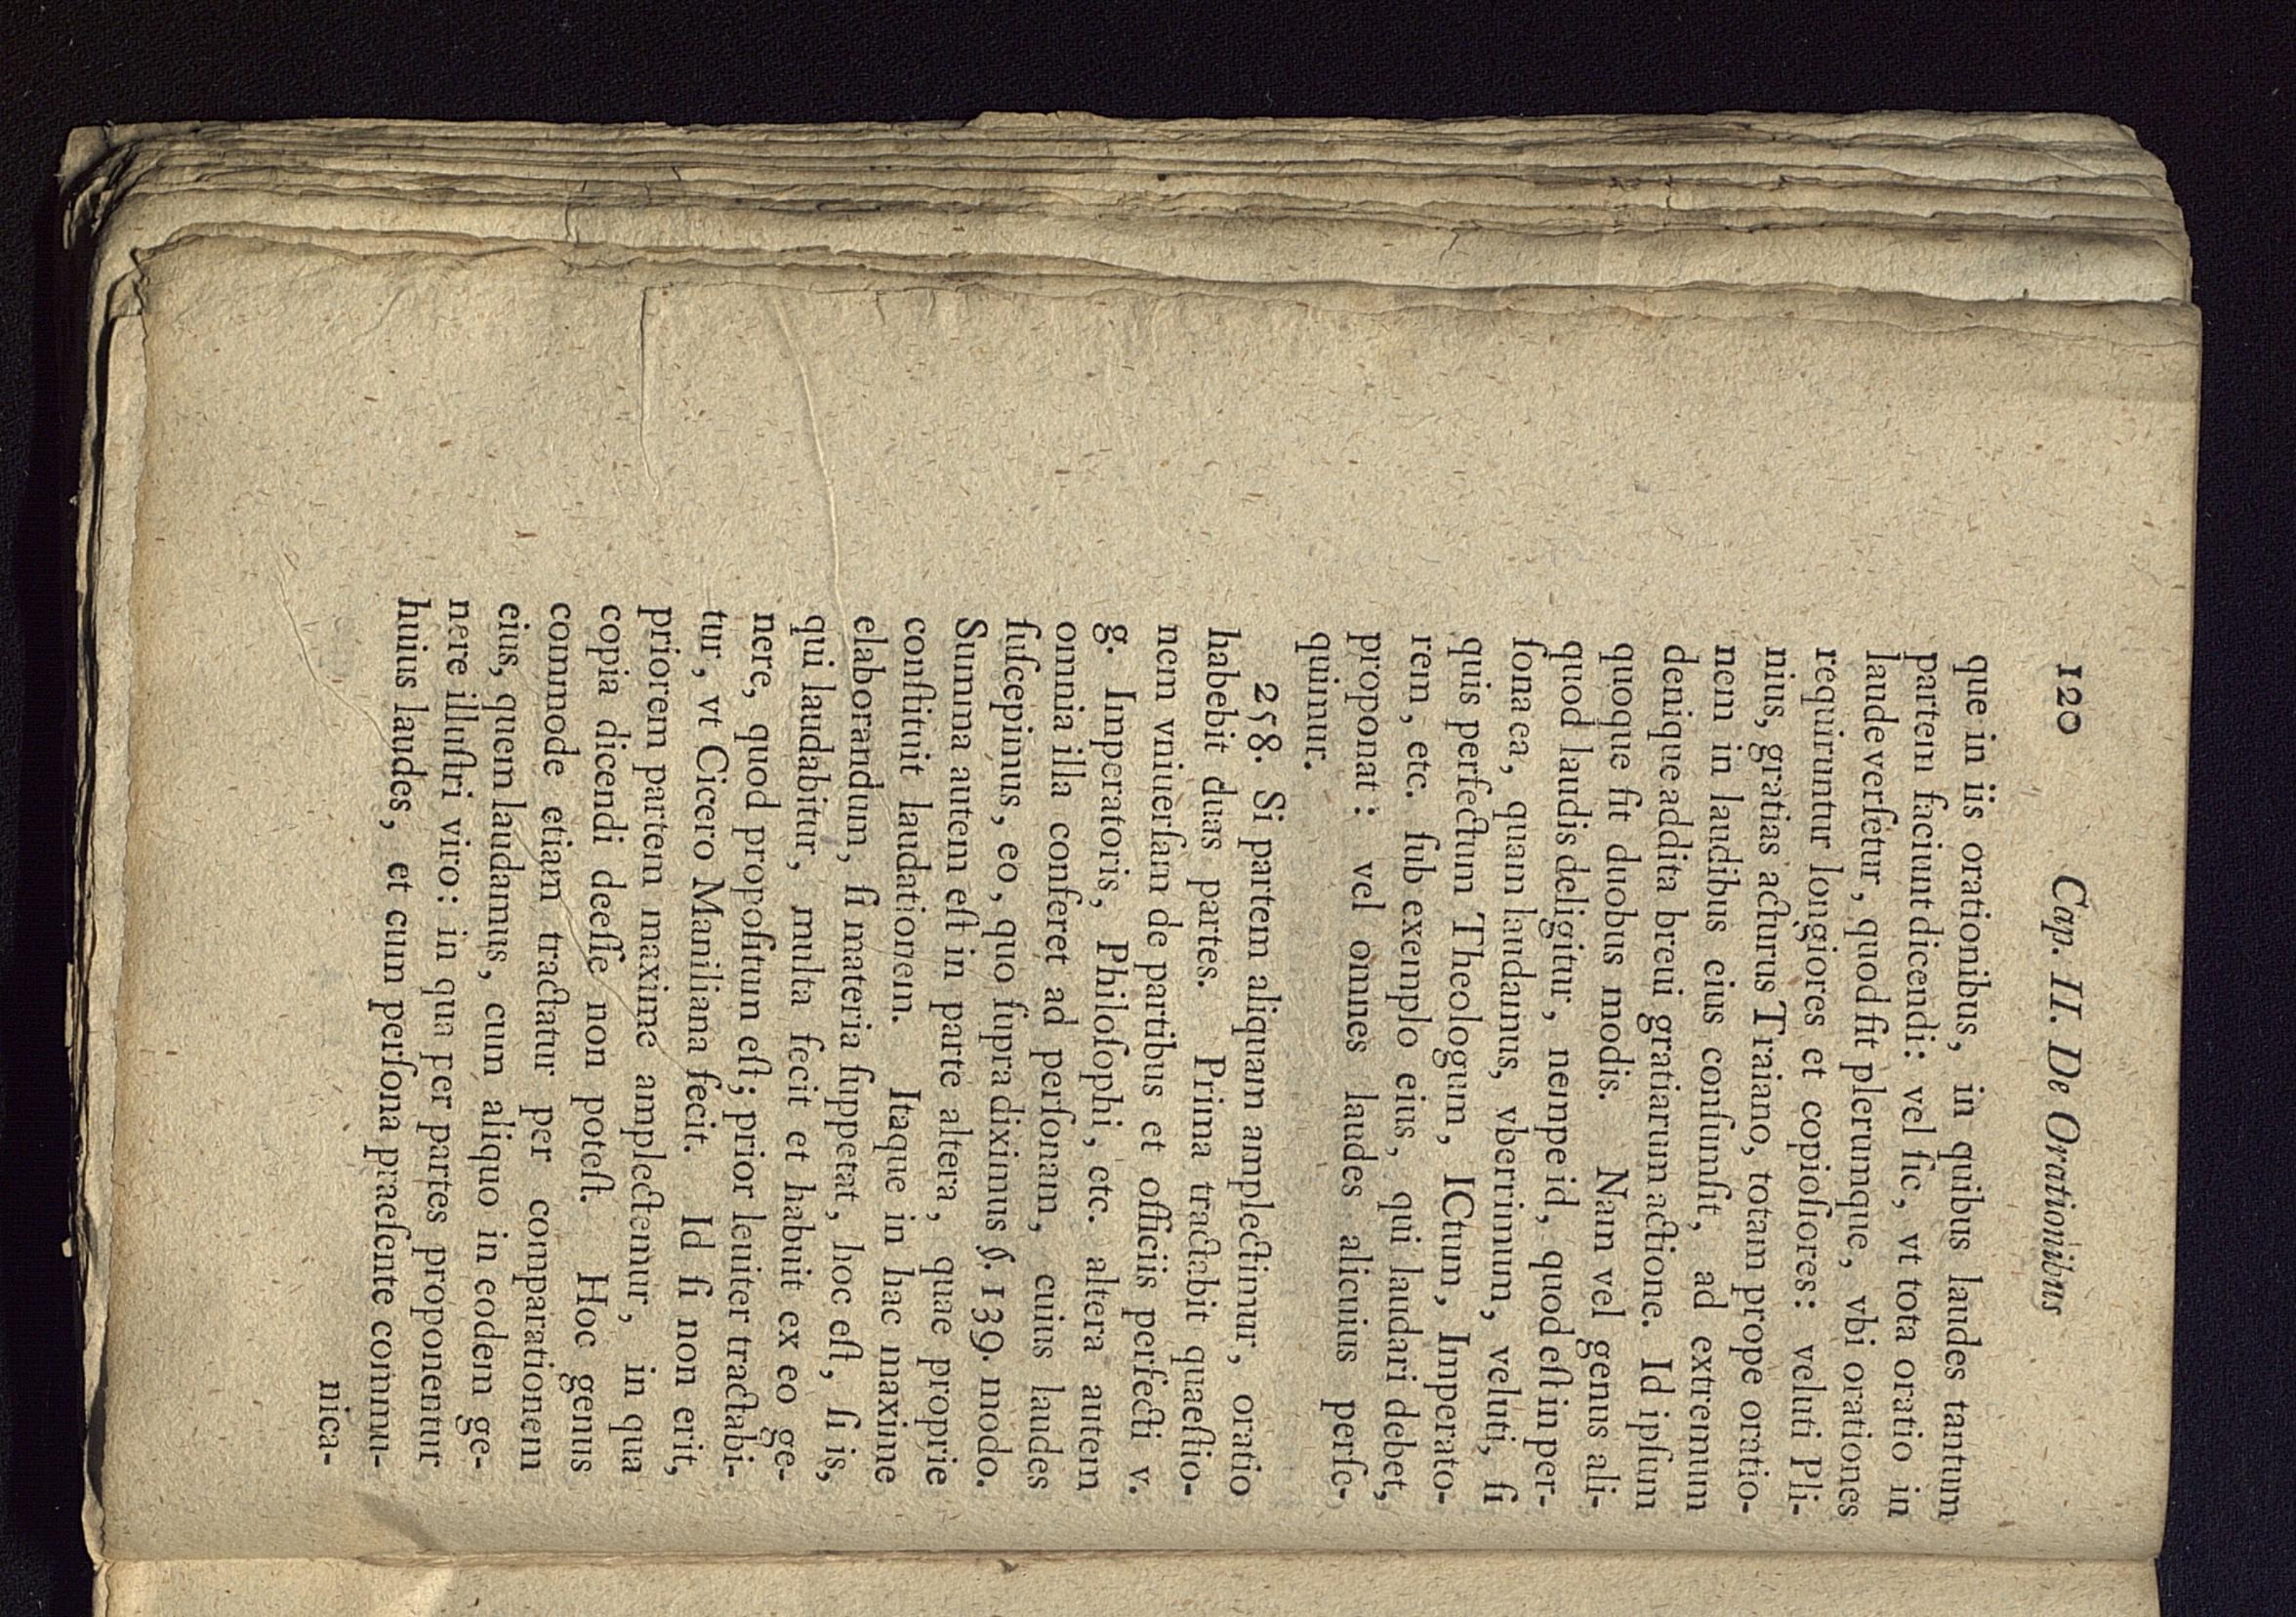 120 Cap. II. De Orationibus
que in iis orationibus, in quibus laudes tantum
partem faciunt dicendi: vel ſic, vt tota oratio in
laude verſetur, quod fit plerumque, vbi orationes
requiruntur longiores et copioſiores: veluti Pli-
nius, gratias acturus Traiano, totam prope oratio-
nem in laudibus eius conſumſit, ad extremum
denique addita breui gratiarum actione. Id ipſum
quoque fit duobus modis. Nam vel genus ali-
quod laudis deligitur, nempe id, quod eſt in per-
ſona ea, quam laudamus, vberrimum, veluti, ſi
quis perfectum Theologum, ICtum, Imperato-
rem, etc. ſub exemplo eius, qui laudari debet,
proponat: vel omnes laudes alicuius perſe-
quimur.
258. Si partem aliquam amplectimur, oratio
habebit duas partes. Prima tractabit quaeſtio-
nem vniuerſam de partibus et officiis perfecti v.
g. Imperatoris, Philoſophi, etc. altera autem
omnia illa conferet ad perſonam, cuius laudes
ſuſcepimus, eo, quo ſupra diximus §. 139. modo.
Summa autem eſt in parte altera, quae proprie
conſtituit laudationem. Itaque in hac maxime
elaborandum, ſi materia ſuppetat, hoc eſt, ſi is,
qui laudabitur, multa fecit et habuit ex eo ge-
nere, quod propoſitum eſt; prior leuiter tractabi-
tur, vt Cicero Maniliana fecit. Id ſi non erit,
priorem partem maxime amplectemur, in qua
copia dicendi deeſſe non poteſt. Hoc genus
commode etiam tractatur per comparationem
eius, quem laudamus, cum aliquo in eodem ge-
nere illuſtri viro: in qua per partes proponentur
huius laudes, et cum perſona praeſente commu-
nica-